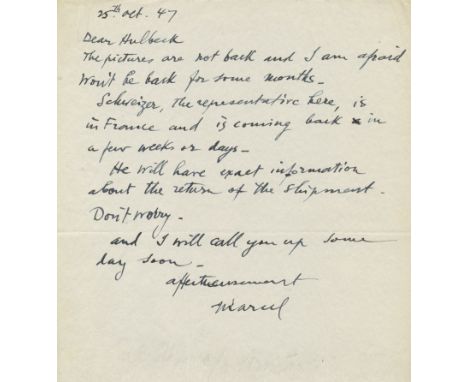 25th oct. 47
Dear Hulbeck
The pictures are not back and I am afraid
won't be back for some months_
Schweizer, the representative here, is
in France and is coming back in
a few weeks or days_
He will have exact information
about the return of the shipment.
Don't worry_
and I will call you up some
day soon_
affectueusement
Marcel